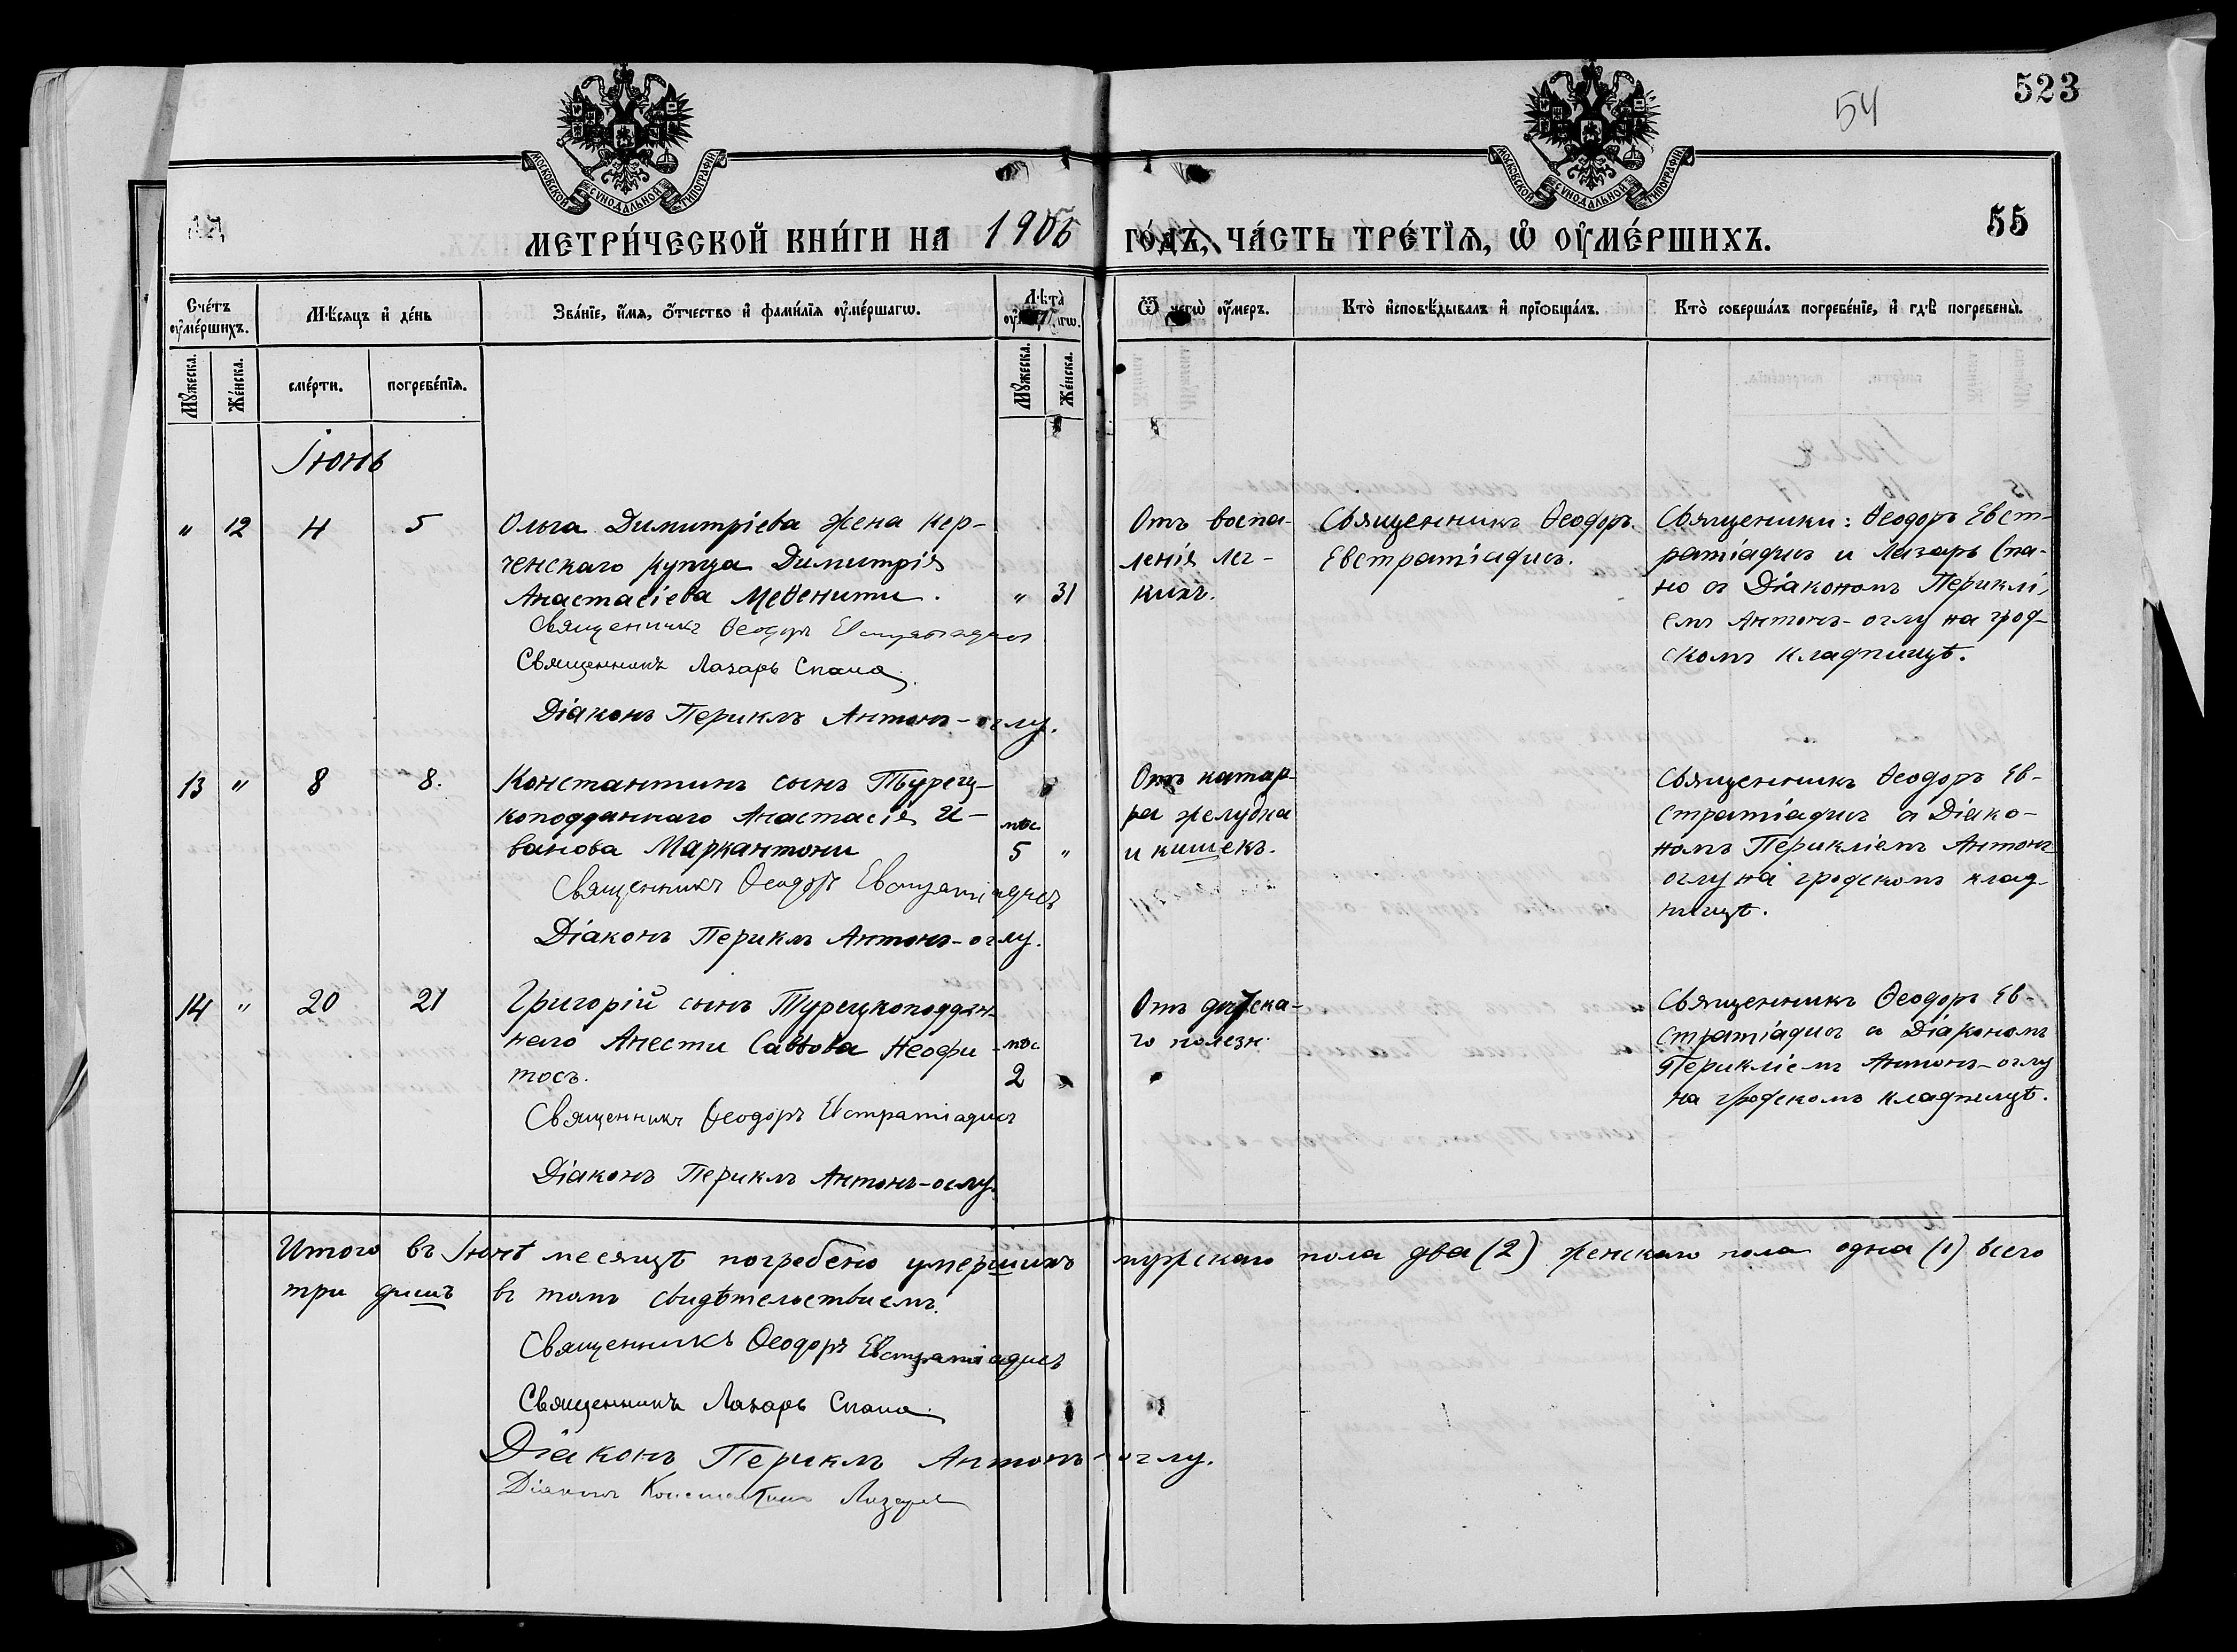 523
54
МОСКОВСКОЙ СУНОДАЛЬНОЙ ТИПОГРАФІИ
МОСКОВСКОЙ СУНОДАЛЬНОЙ ТИПОГРАФІИ
55
МЕТРИ́ЧЕСКОЙ КНИ́ГИ НА 1906 ГО́ДЪ, ЧА́СТЬ ТРЕ́ТЇѦ, Ѡ҆ ОУ҆МЕ́РШИХЪ.
Сче́тъ оу҆ме́ршихъ.
Мѣ́сяцъ и҆ де́нь
Зва́нїе, и҆́мя, ѻ҆́тчество и҆ фами́лїя оу҆ме́ршагѡ.
Лѣ́та̀
Ѿ чегѡ̀ оу҆́меръ.
Кто̀ и҆сповѣ́дывалъ и҆ прїѡбща́лъ.
Кто̀ соверша́лъ погребе́нїе, и҆ гдѣ̀ погребены̀.
Мꙋ́жеска.
Же́нска.
сме́рти.
погребе́нїя.
Мꙋ́жеска.
Же́нска.
Іюнь
" 12 4 5
Ольга Димитріева жена Кер-
ченскаго купца Димитрія
Анастасіева Меѳенити. " 31
Священникъ Ѳеодоръ Евстратіадисъ
Священникъ Лазарь Спано.
Діаконъ Периклъ Антонъ-оглу.
Отъ воспа-
ленія лег-
кихъ.
Священникъ Ѳеодоръ
Евстратіадисъ.
Священики: Ѳеодоръ Евст-
ратіадисъ и Лазарь Спа-
но съ Діакономъ Периклі-
емъ Антонъ-оглу на град-
скомъ кладпищѣ.
13 " 8 8.
Константинъ сынъ Турец-
коподданнаго Анастасія И-
ванова Маркантони
мѣс.
5 "
Священникъ Ѳеодоръ Евстратіадисъ
Діаконъ Периклъ Антонъ-оглу.
Отъ катар-
ра желудка
и кишекъ.
Священникъ Ѳеодоръ Ев-
стратіадисъ съ Діако-
номъ Перикліемъ Антонъ
оглу на градскомъ клад-
пищѣ.
14 " 20 21
Григорій сынъ Турецкоподдан-
наго Анести Саввова Неофи-
тосъ.
мѣс
2
Священникъ Ѳеодоръ Евстратіадисъ
Діаконъ Периклъ Антонъ-оглу.
Отъ дѣтска-
го
Священникъ Ѳеодоръ Ев-
стратіадисъ съ Діакономъ
Перикліемъ Антонъ-оглу
на градскомъ кладпищѣ.
Итого въ Іюнѣ месяцѣ погребено умершихъ мужскаго пола два (2) женскаго пола одна (1) всего
три душъ въ томъ свидѣтельствуемъ.
Священникъ Ѳеодоръ Евстратіадисъ
Священникъ Лазарь Спано
Діаконъ Периклъ Антонъ-оглу.
Діаконъ Константинъ